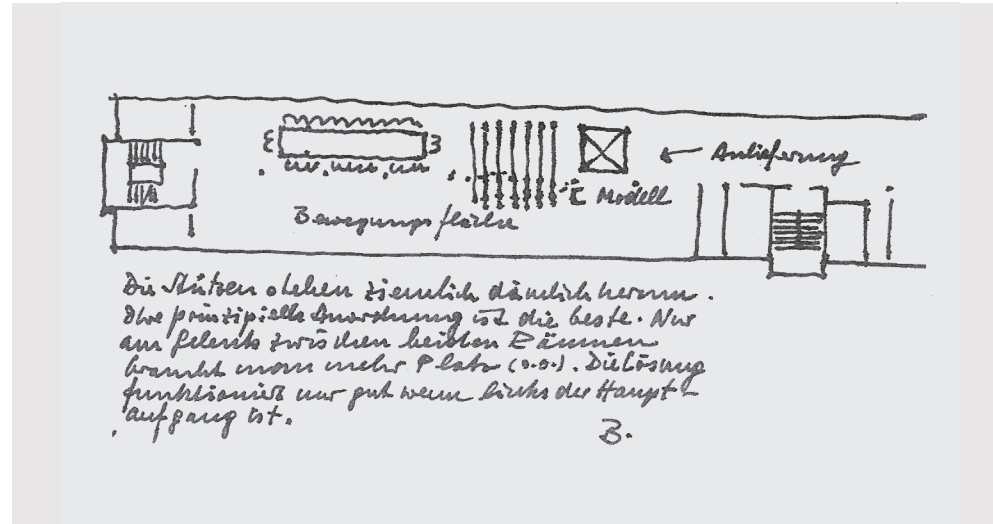 Anlieferung
Modell
Bewegungsfläche
Die Stützen stehen ziemlich dämlich herum.
Ihre prinzipielle Anordnung ist die beste. Nur
am Gelenk zwischen beiden Räumen
braucht man mehr Platz (s.o.). Die Lösung
funktioniert nur gut wenn links der Haupt-
aufgang ist.
B.